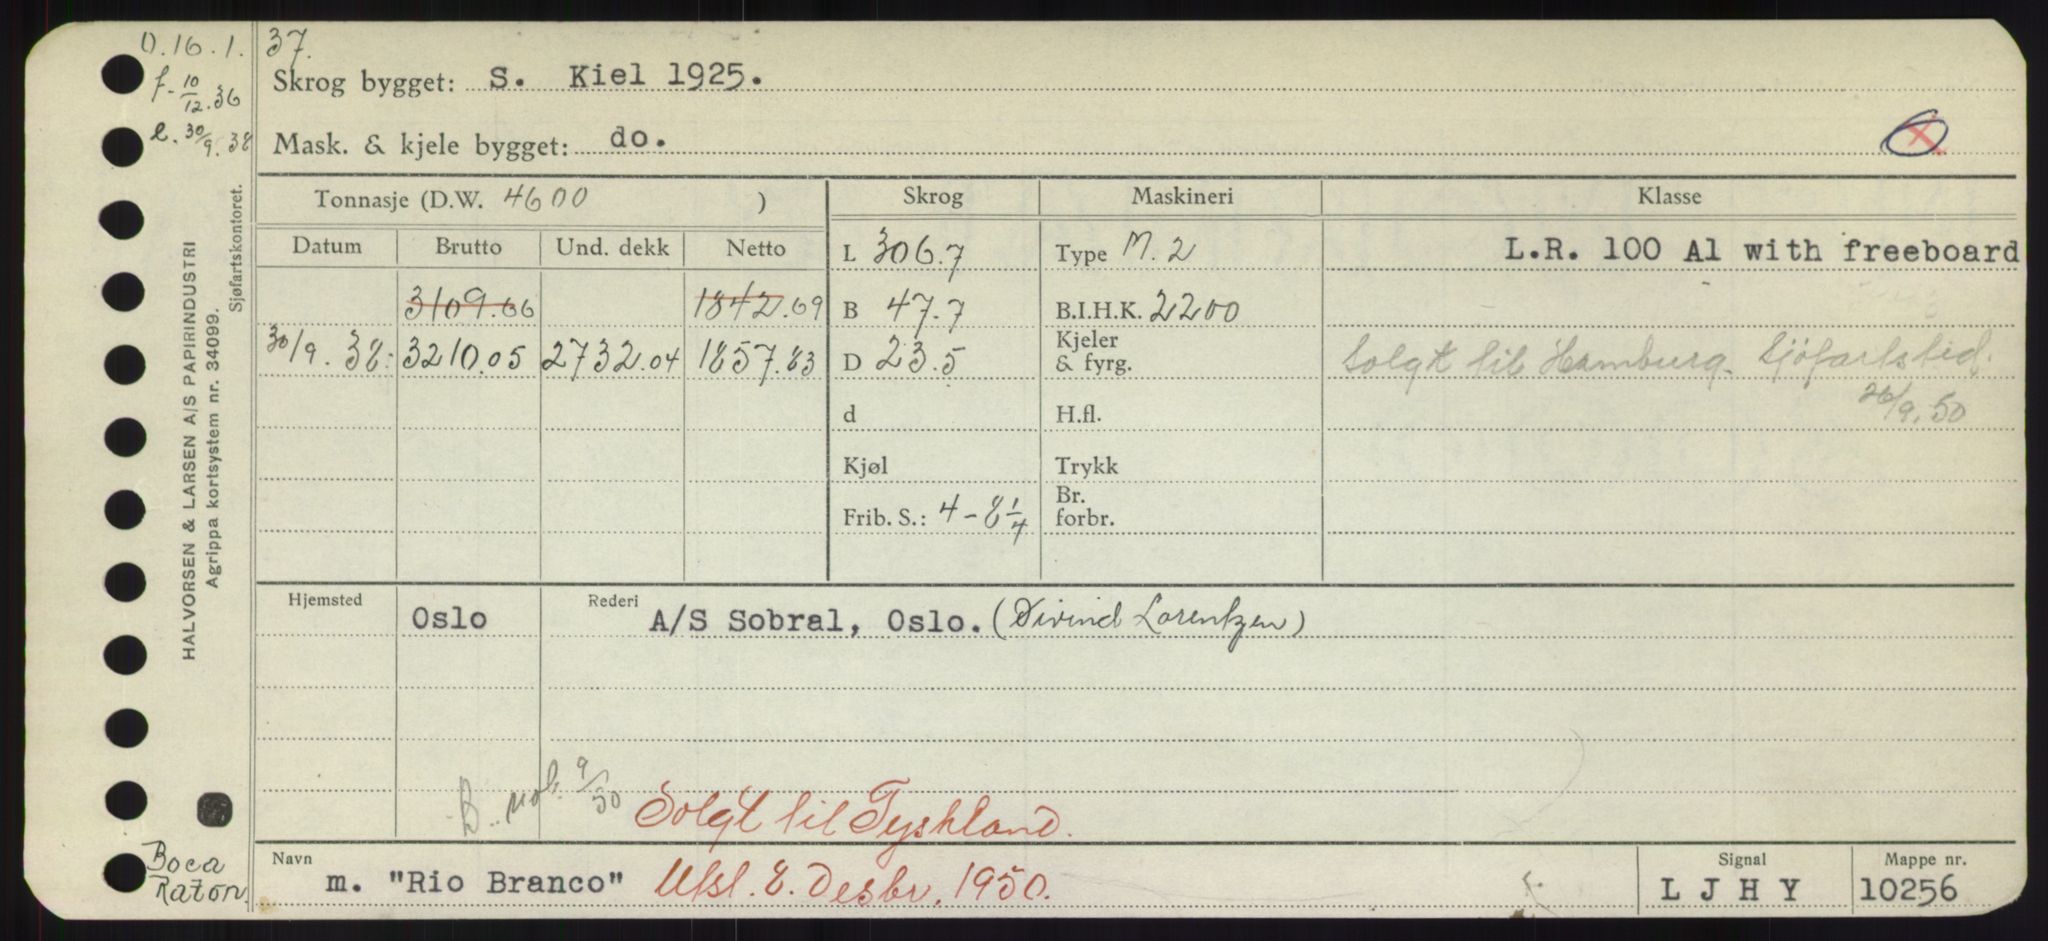 D. 16. 1. 37.
f. 10/12. 36
e. 30/9. 38
Skrog bygget: S. Kiel 1925.
Mask. & kjele bygget: do.
HALVORSEN & LARSEN A/S PAPIRINDUSTRI
Agrippa kortsystem nr. 34099.
Sjøfartskontoret.
Tonnasje (D.W. 4600 )
Skrog
Maskineri
Klasse
Datum Brutto Und. dekk Netto
L 306.7 Type M. 2 L.R. 100 A1 with freeboard
3109.66 1842.69 B 47.7 B.I.H.K. 2200
30/9. 38: 3210.05 2732.04 1857.83 D 23.5 Kjeler & fyrg. Solgt til Hamburg. Sjöfartstid.
26/9. 50
d H.fl.
Kjøl Trykk
Frib. S.: 4-8 1/4 Br. forbr.
Hjemsted Oslo Rederi A/S Sobral, Oslo. (Øivind Lorentzen)
9/50 Solgt til Tyskland.
Boca Raton
Navn m. "Rio Branco" Utsl. 8. Desbr. 1950.
Signal LJHY
Mappe nr. 10256